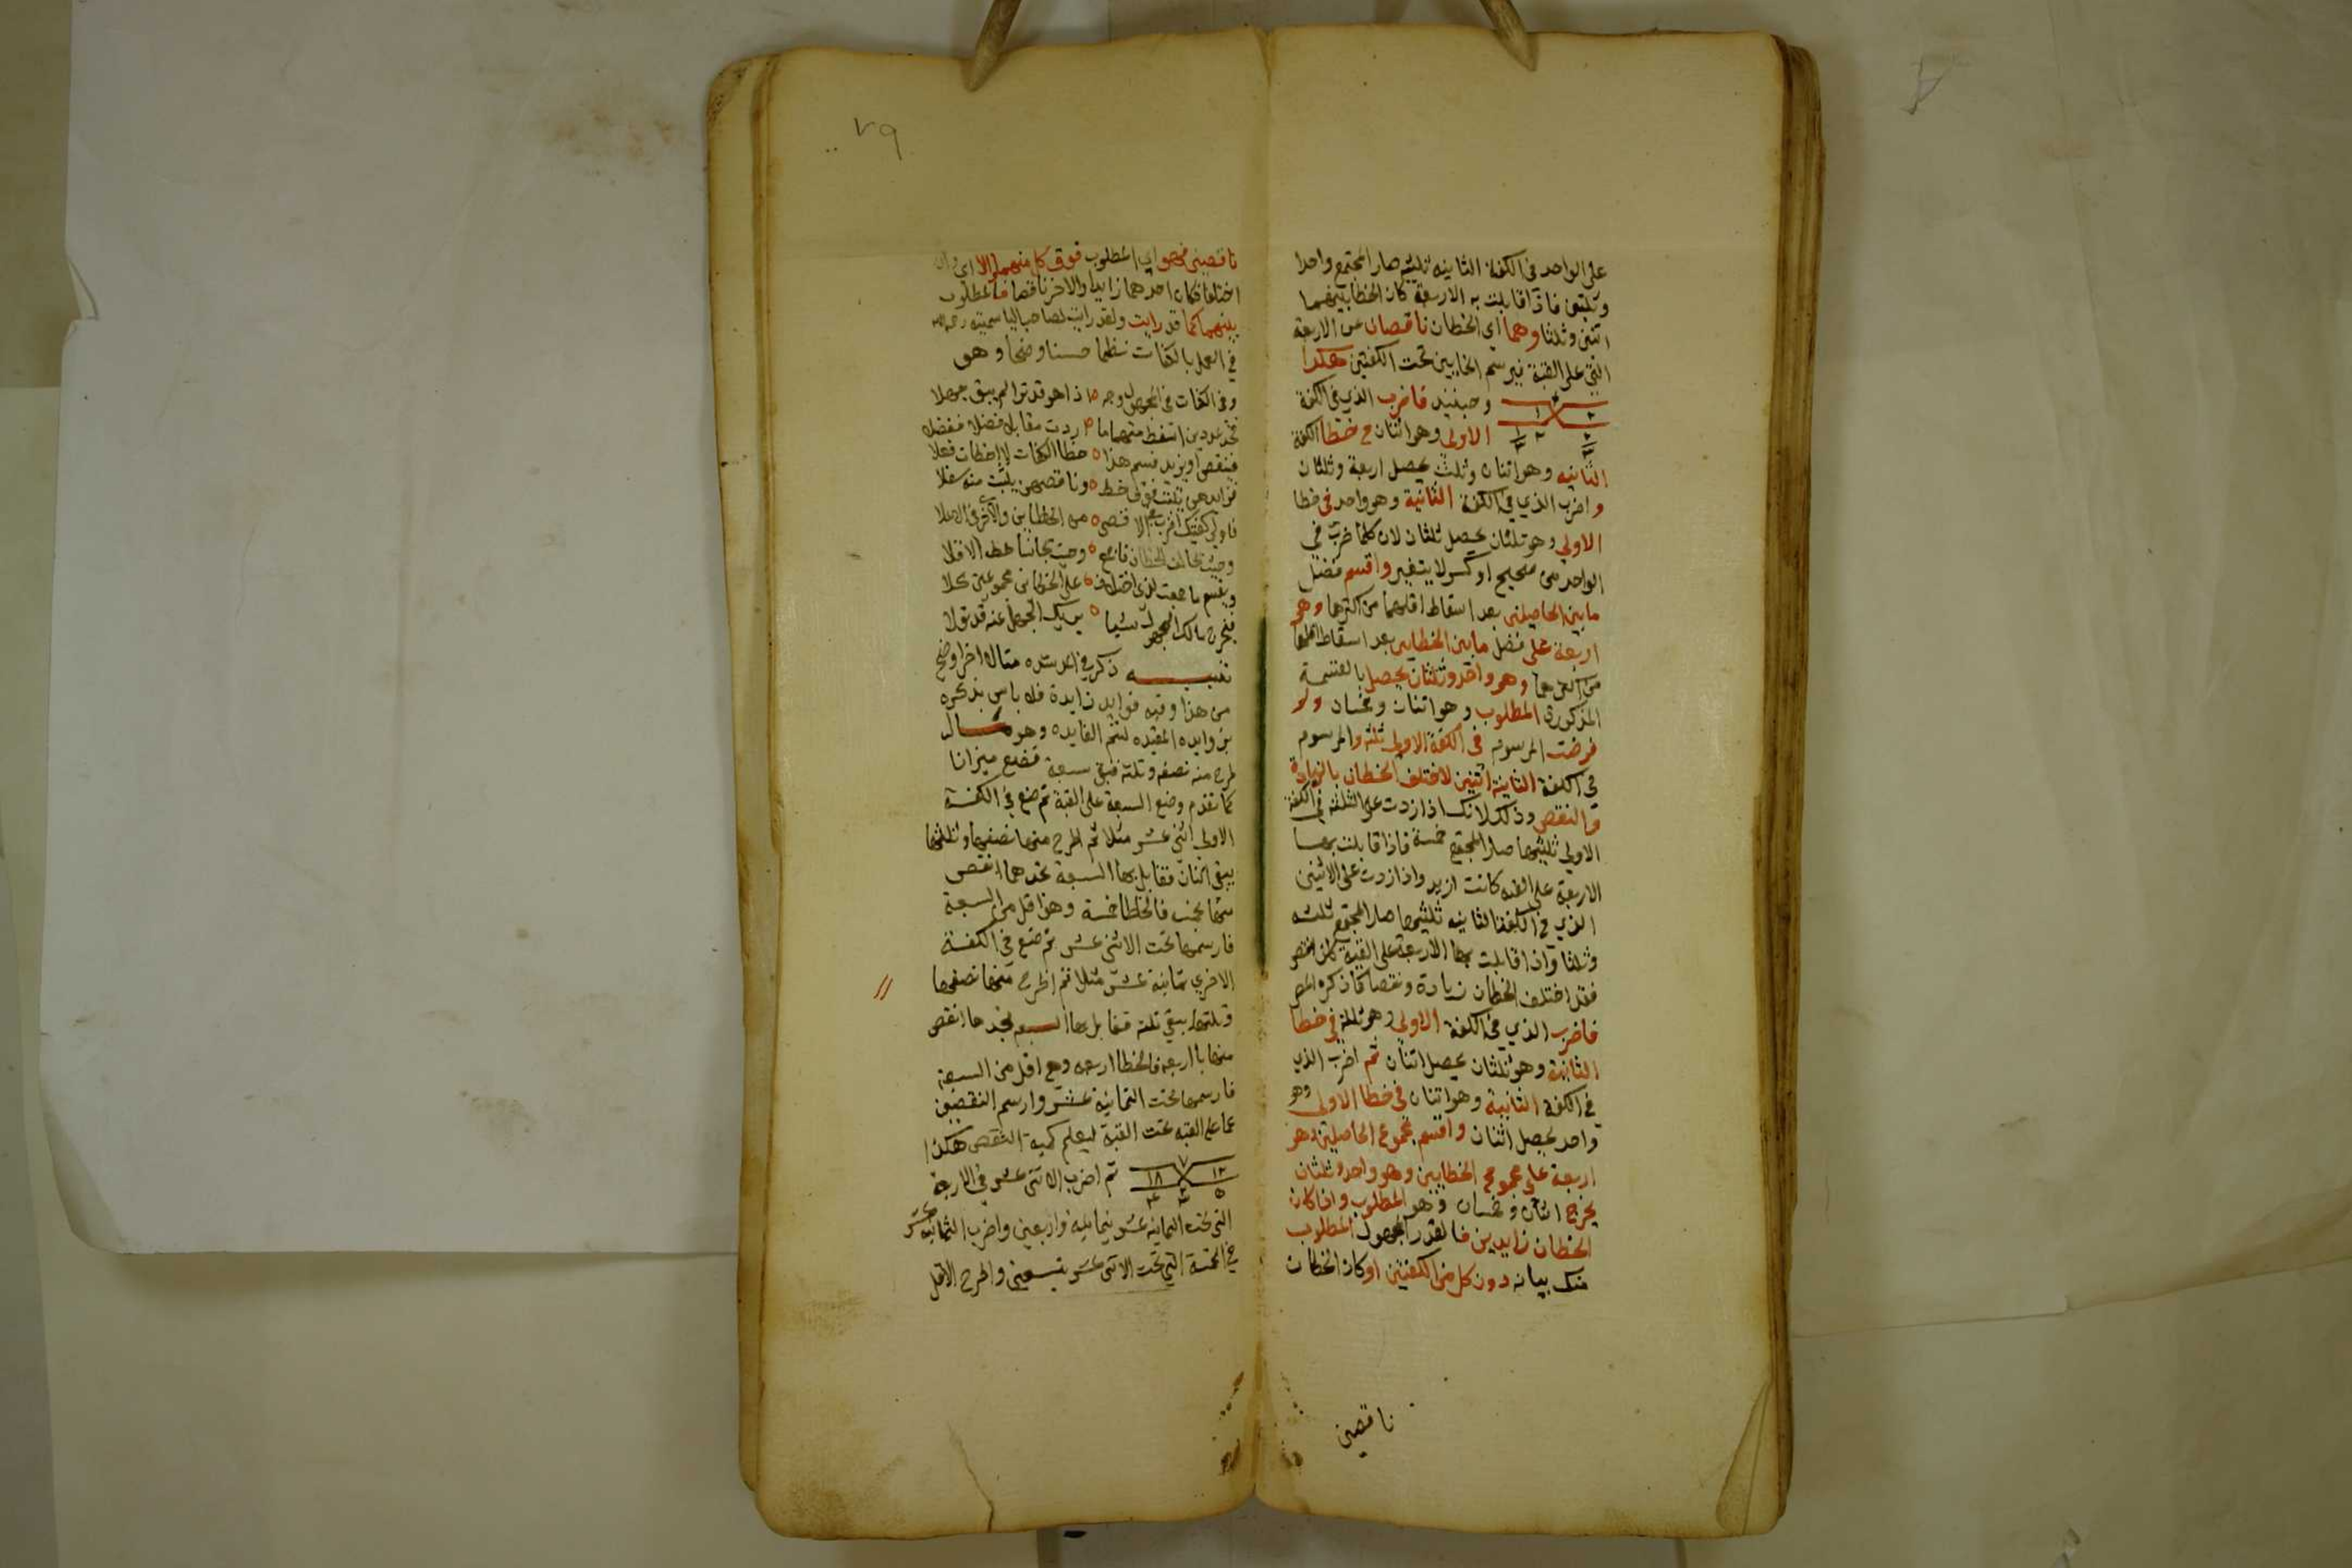 على الواحد في الكفة الثانيه ثلثيه صار المجتمع واحدا
وثلثين فاذا قابلت به الاربعة كان الخطا بينهما
اثنين وثلثا وهما اي الخطان ناقصان عن الاربعة
التي على القبة فيرسم الخطايين تحت الكفتين هكذا
وحينئذ فاضرب الذي في الكفة
الاولى وهو اثنان في خطا الكفة
الثانيه وهو اثنان وثلث يحصل اربعة وثلثان
واضرب الذي في الكفة الثانية وهو واحد في خطا
الاولي وهو ثلثان يحصل ثلثان لان كلما ضرب في
الواحد من صحيح او كسر لا يتغير واقسم فضل
ما بين الحاصلين بعد اسقاط اقلهما من اكثرهما وهو
اربعة على فضل ما بين الخطايين بعد اسقاط اقلهما
من اكثرهما وهو واحد وثلثان يحصل بالقسمة
المذكورة المطلوب وهو اثنان وخمسان ولو
فرضت المرسوم في الكفة الاولى ثلثه والمرسوم
في الكفة الثانية اثنين لاختلف الخطان بالزيادة
والنقص وذلك لانك اذا زدت على الثلثه في الكفة
الاولي ثلثيها صار المجتمع خمسة فاذا قابلت بها
الاربعة على القبه كانت ازيد واذا زدت على الاثنين
الذي في الكفة الثانيه ثلثيها صار المجتمع ثلثه
وثلثا واذا قابلت بها الاربعة على القبة كان انقص
فقد اختلف الخطان زيادة ونقصا كما ذكره المص
فاضرب الذي في الكفة الاولى وهو ثلثة في خطا
الثانية وهو ثلثان يحصل اثنان ثم اضرب الذي
في الكفة الثانية وهو اثنان في خطا الاولى وهو
واحد يحصل اثنان واقسم مجموع الحاصلين وهو
اربعة على مجموع الخطايين وهو واحد وثلثان
يخرج اثنان وخمسان وهو المطلوب وان كان
الخطان زايدين فالقدر المجهول المطلوب
منك بيانه دون كل من الكفتين او كان الخطان
ناقصين
٧٩
ناقصين فهو اي المطلوب فوق كل منهما والا اي وان
اختلفا فكان احدهما زايدا والاخر ناقصا فالمطلوب
بينهما كما قد رايت ولقد رايت لصاحب الياسمينيه رحمه الله
في العمل بالكفات نظما حسنا واضحا وهو
وفي الكفات في المجهول وجه ٥ اذا هو قد تراه لم يبق جهلا
فخذ عددين اسقط منهما ما ٥ اردت مقابلا فضلا ففضلا
فينقص او يزيد فسم هذا ٥ خطا الكفات لا اخطات فعلا
فزايدهن يثبت فوق خط ٥ وناقصهن يثبت منه سفلا
فاولى كفتيك اضرب مع الاقصى ٥ من الخطاين والاخرى في الاعلا
وحيث تخالف الخطان فاجمع ٥ وحيث تجانسا حط الاقلا
ويقسم ما جمعت لدى اختلاف ٥ على الخطاين مجموعين كلا
فيخرج ذلك المجهول شيا ٥ يريك الجهل عنه قد تولا
تنبيه ذكر في المرشده مثالا اخر اوضح
من هذا وفيه فوايد زايدة فلا باس بذكره
بزوايده المفيده لتتم الفايده وهو مال
طرح منه نصفه وثلثه فبقي سبعة فتضع ميزانا
كما تقدم وضع السبعة على القبة ثم ضع في الكفة
الاولى اثني عشر مثلا ثم اطرح منها نصفها وثلثها
يبقى اثنان فقابل بهما السبعة تجدهما انقص
منها بخمسة فالخطا خمسة وهو اقل من السبعة
فارسمها تحت الاثني عشر ثم ضع في الكفة
الاخري ثمانية عشر مثلا ثم اطرح منها نصفها
وثلثها يبقي ثلثه فقابل بها السبعه تجدها انقص
منها باربعه فالخطا اربعه وهي اقل من السبعة
فارسمها تحت الثمانية عشر وارسم النقصين
عما على القبه تحت القبة ليعلم كمية النقص هكذا
١٢ ٧ ١٨ ثم اضرب الاثنى عشر في الاربعة
التي تحت الثمانيه عشر بثمانيه واربعين واضرب الثمانيه عشر
في الخمسة التي تحت الاثنى عشر بتسعين واطرح الاقل